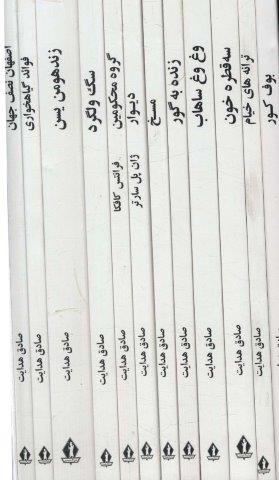 اصفهان نصف جهان
صادق هدایت
فوائد گیاهخواری
صادق هدایت
زندهومن یسن
صادق هدایت
سگ ولگرد
صادق هدایت
گروه محکومین
فرانتس کافکا
صادق هدایت
دیوار
ژان پل سارتر
صادق هدایت
مسخ
صادق هدایت
زنده به گور
صادق هدایت
وغ وغ ساهاب
صادق هدایت
سه‌قطره خون
صادق هدایت
ترانه های خیام
صادق هدایت
بوف کور